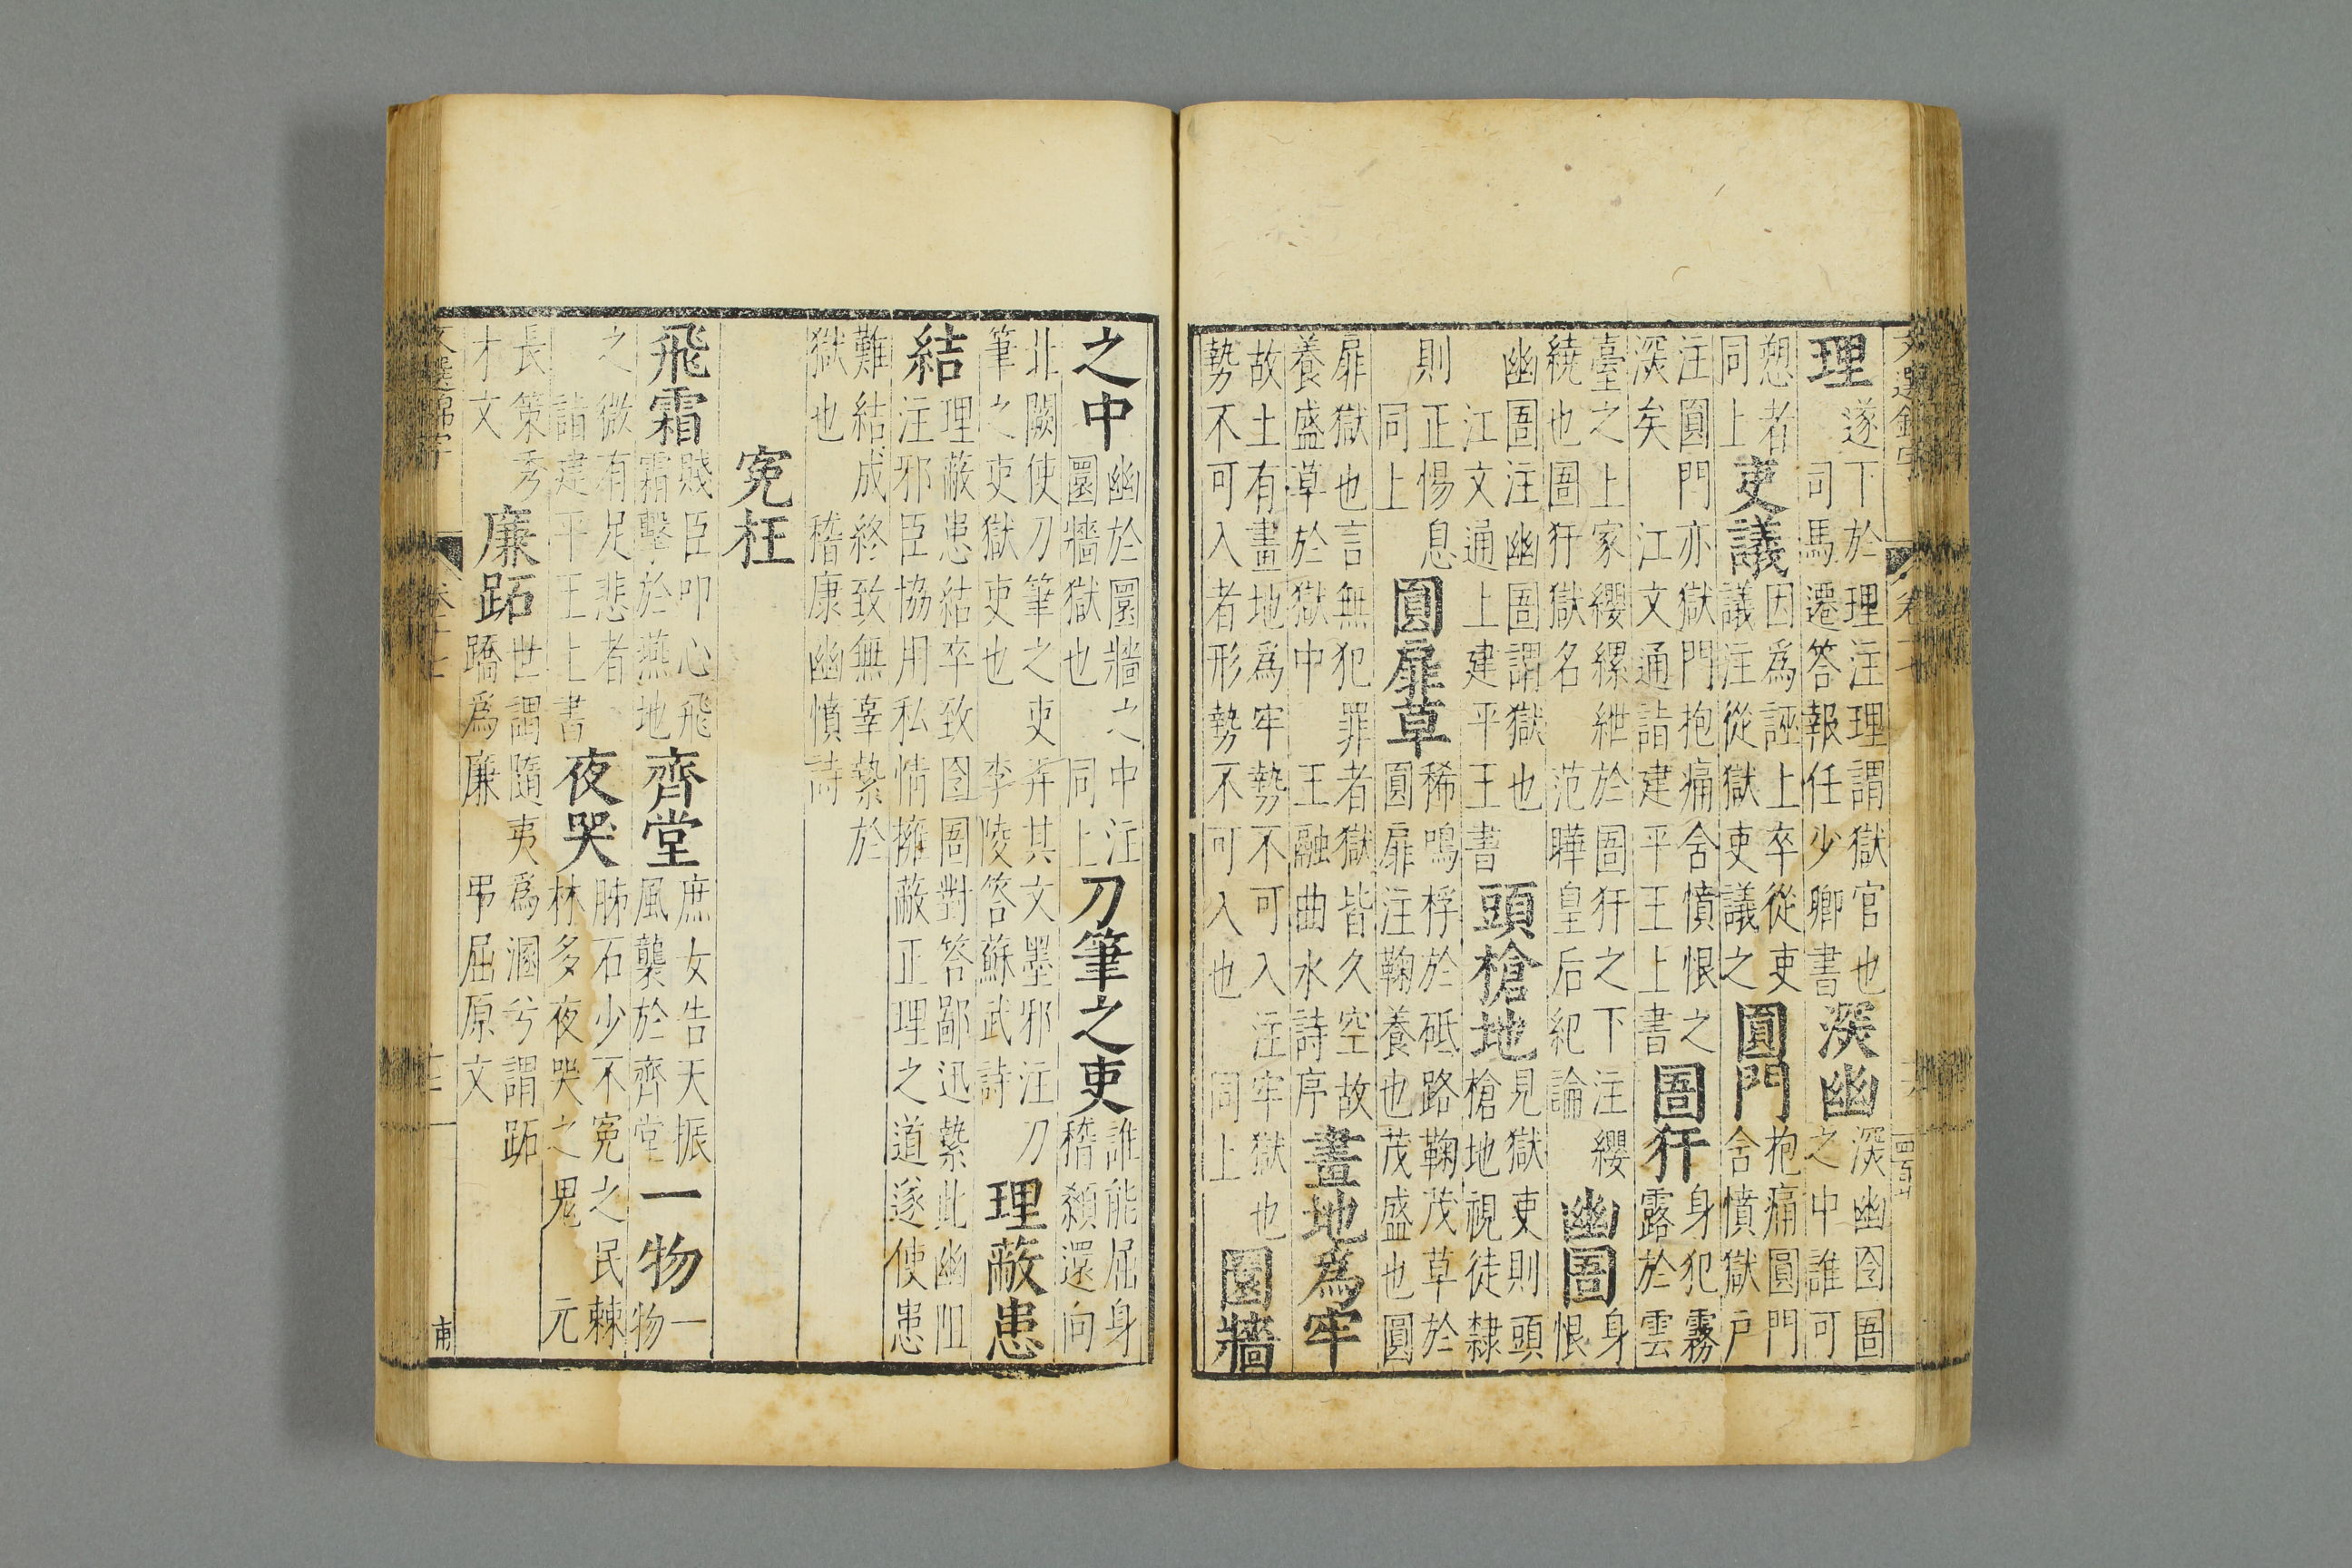 理遂下於理注理謂獄官也司馬遷答報任少卿書深幽深幽囹圄之中誰可
愬者同上吏議因爲誣上卒從吏議注從獄吏議之圓門抱痛圓門含憤獄戶
注圓門亦獄門抱痛含憤恨之深矣江文通詣建平王上書圄犴身犯霧露於雲
臺之上家纓縲紲於圄犴之下注纓繞也圄犴獄名范曄皇后紀論幽圄身恨
幽圄注幽圄謂獄也江文通上建平王書頭槍地見獄吏則頭槍地視徒隸
則正惕息同上圓扉草稀鳴桴於砥路鞠茂草於圓扉注鞠養也茂盛也圓
扉獄也言無犯罪者獄皆久空故養盛草於獄中王融曲水詩序畫地爲牢
故土有畫地爲牢勢不可入注牢獄也勢不可入者形勢不可入也同上圜牆
之中幽於圜牆之中注圜牆獄也同上刀筆之吏誰能屈身稽顙還向
北闕使刀筆之吏弄其文墨邪注刀筆之吏獄吏也李陵答蘇武詩理蔽患
結理蔽患結卒致囹圄對答鄙迅縶此幽阻注邪臣協用私情擁蔽正理之道遂使患
難結成終致無辜縶於獄也稽康幽憤詩
冤枉
飛霜賤臣叩心飛霜擊於燕地齊堂庶女告天振風襲於齊堂一物一物
之微有足悲者詣建平王上書夜哭肺石少不冤之民棘林多夜哭之鬼元
長策秀才文廉跖世謂隨夷爲溷兮謂跖蹻爲廉弔屈原文